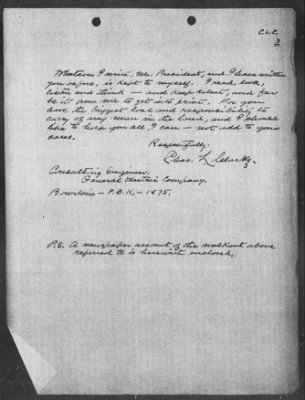 C.L.C.
3
Whatever I write, Mr. President, and I have written
you before, is kept to myself. I read, look,
listen and think — and keep silent, and far
be it from me to get into print. For you
have the biggest load and responsibility to
carry of any man in the land, and I should
like to help you all I can — not add to your
cares.
Respectfully,
Chas. L.
Consulting Engineer.
General Electric Company.
Bowdoin — P.B.K. — 1875.
P.S. A newspaper account of the walkout above
referred to is herewith enclosed.